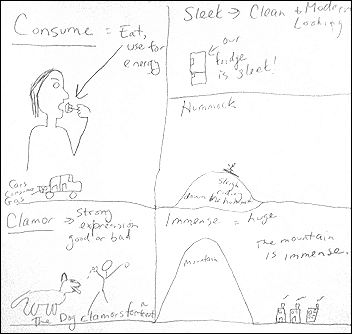 Consume = Eat,
use for
energy
Cars
Consume
Gas
Sleek → Clean & Modern
Looking
our
fridge
is sleek!
Hummock
Sleigh
riding
down the hummock
Clamor → Strong
expression
good or bad
The Dog clamors for a
treat
Immense = huge
Mountain
The mountain
is immense.